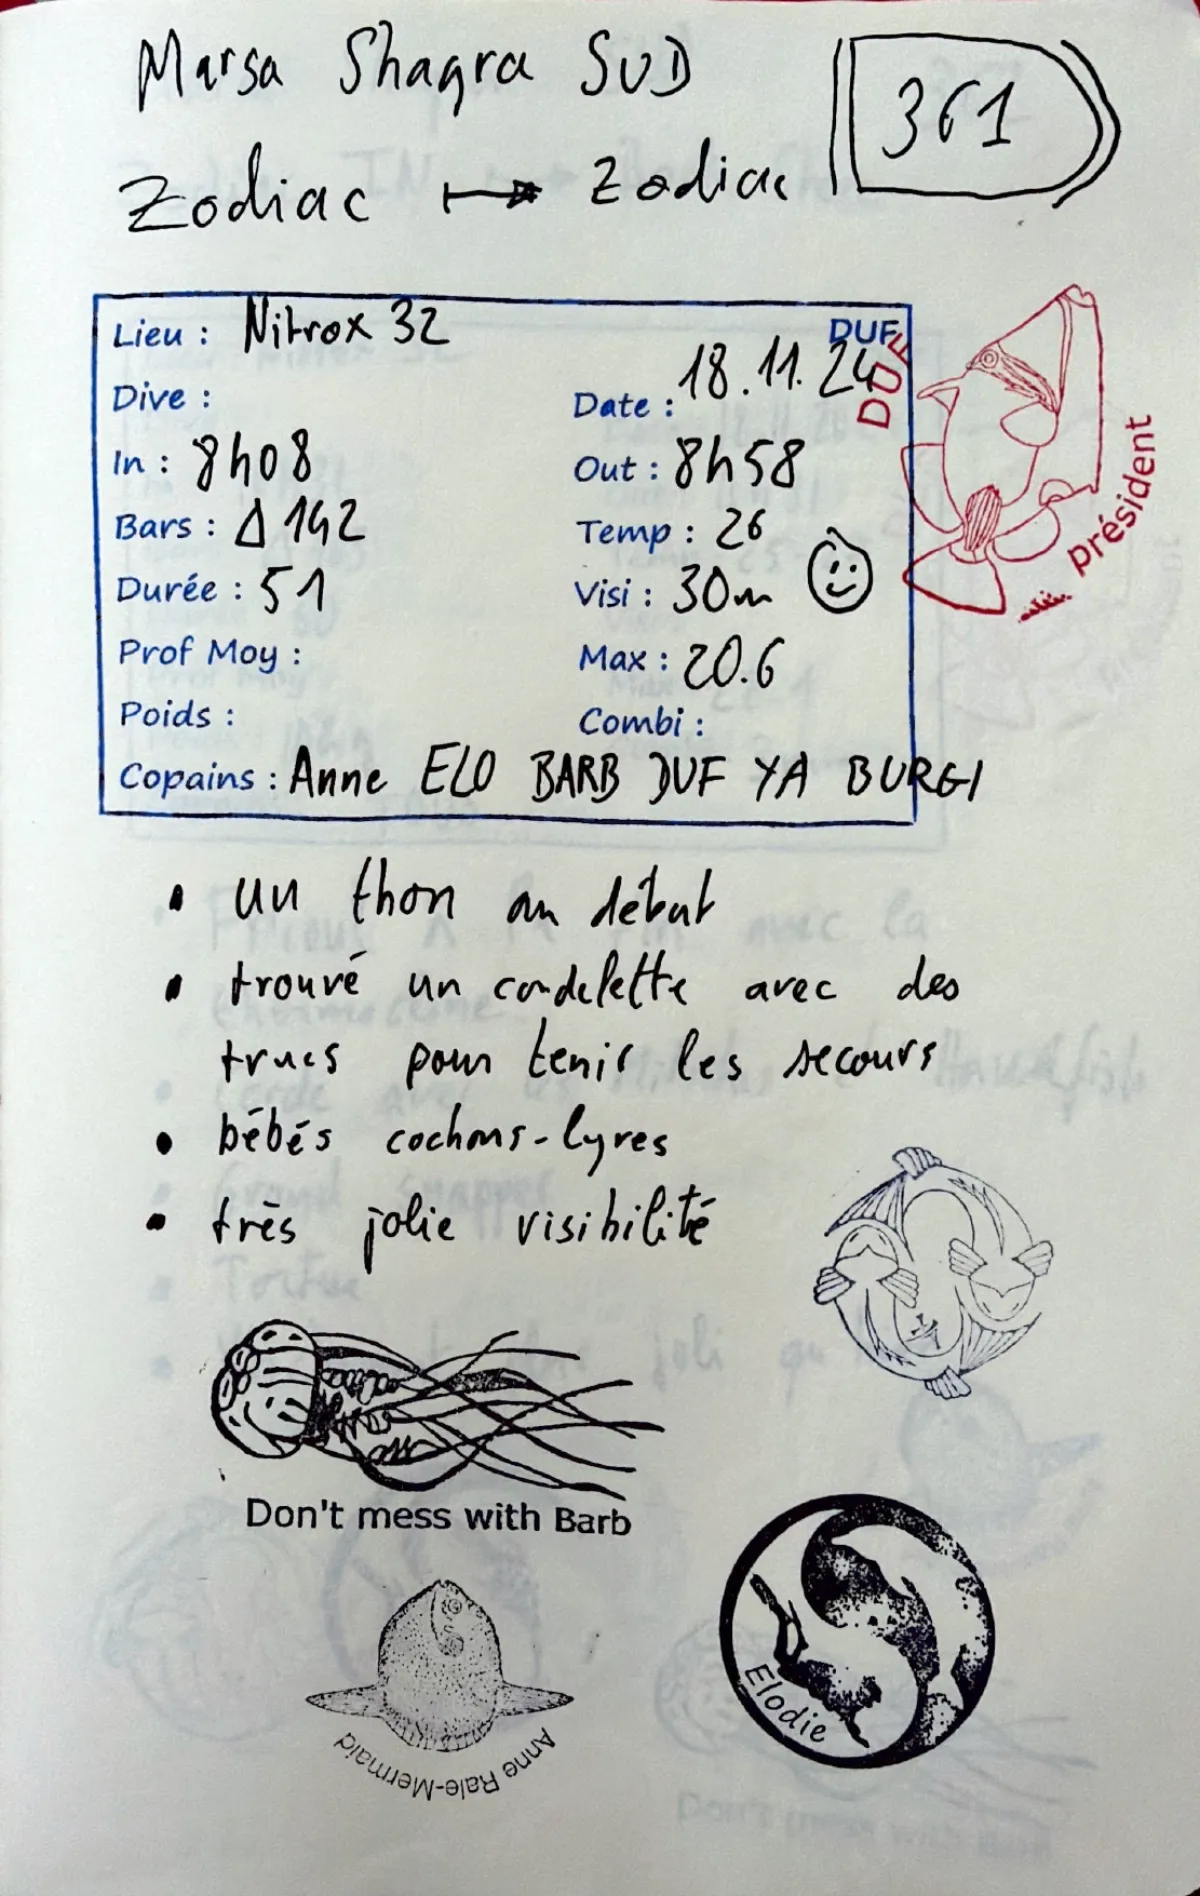 Marsa Shagra SUD
361
Zodiac ↦ Zodiac
Lieu : Nitrox 32
DUF
DUF
Dive :
Date : 18.11.24
In : 8h08
Out : 8h58
Bars : Δ 142
Temp : 26
Durée : 51
Visi : 30m
président
Prof Moy :
Max : 20.6
Poids :
Combi :
Copains : Anne ELO BARB DUF YA BURGI
• un thon au début
• trouvé un cordelette avec des
trucs pour tenir les secours
• bébés cochons-lyres
• très jolie visibilité
Don't mess with Barb
Elodie
Anne Rale-Mermaid